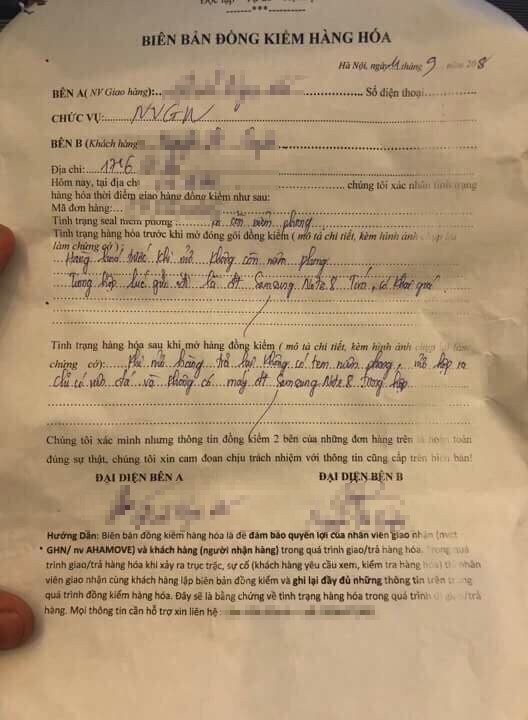 BIÊN BẢN ĐỒNG KIỂM HÀNG HÓA
Hà Nội, ngày 11 tháng 9 năm 2018
BÊN A( NV Giao hàng): Số điện thoại
CHỨC VỤ: NVGN
BÊN B (Khách hàng
Địa chỉ: 1276
Hôm nay, tại địa chỉ chúng tôi xác nhận tình trạng
hàng hóa thời điểm giao hàng đồng kiểm như sau:
Mã đơn hàng:
Tình trạng seal niêm phong còn niêm phong
Tình trạng hàng hóa trước khi mở đóng gói đồng kiểm ( mô tả chi tiết, kèm hình ảnh chụp lại
làm chứng cớ) :
Hàng trước khi mở không còn niêm phong
Trong hộp lúc gửi đi là đt Samsung Note 8 Tím, có khai giá
Tình trạng hàng hóa sau khi mở hàng đồng kiểm ( mô tả chi tiết, kèm hình ảnh chụp lại làm
chứng cớ): Khi nhận hàng trả lại không có tem niêm phong, mở hộp ra
chỉ có viên đá và không có máy đt Samsung Note 8 trong hộp
Chúng tôi xác minh nhưng thông tin đồng kiểm 2 bên của những đơn hàng trên là hoàn toàn
đúng sự thật, chúng tôi xin cam đoan chịu trách nhiệm với thông tin cũng cấp trên biên bản!
ĐẠI DIỆN BÊN A ĐẠI DIỆN BÊN B
Hướng Dẫn: Biên bản đồng kiểm hàng hóa là để đảm bảo quyền lợi của nhân viên giao nhận (nvct
GHN/ nv AHAMOVE) và khách hàng (người nhận hàng) trong quá trình giao/trả hàng hóa. Trong quá
trình giao/trả hàng hóa khi xảy ra trục trặc, sự cố (khách hàng yêu cầu xem, kiểm tra hàng hóa) thì nhân
viên giao nhận cùng khách hàng lập biên bản đồng kiểm và ghi lại đầy đủ những thông tin trên trong
quá trình đồng kiểm hàng hóa. Đây sẽ là bằng chứng về tình trạng hàng hóa trong quá trình đi giao/trả
hàng. Mọi thông tin cần hỗ trợ xin liên hệ :